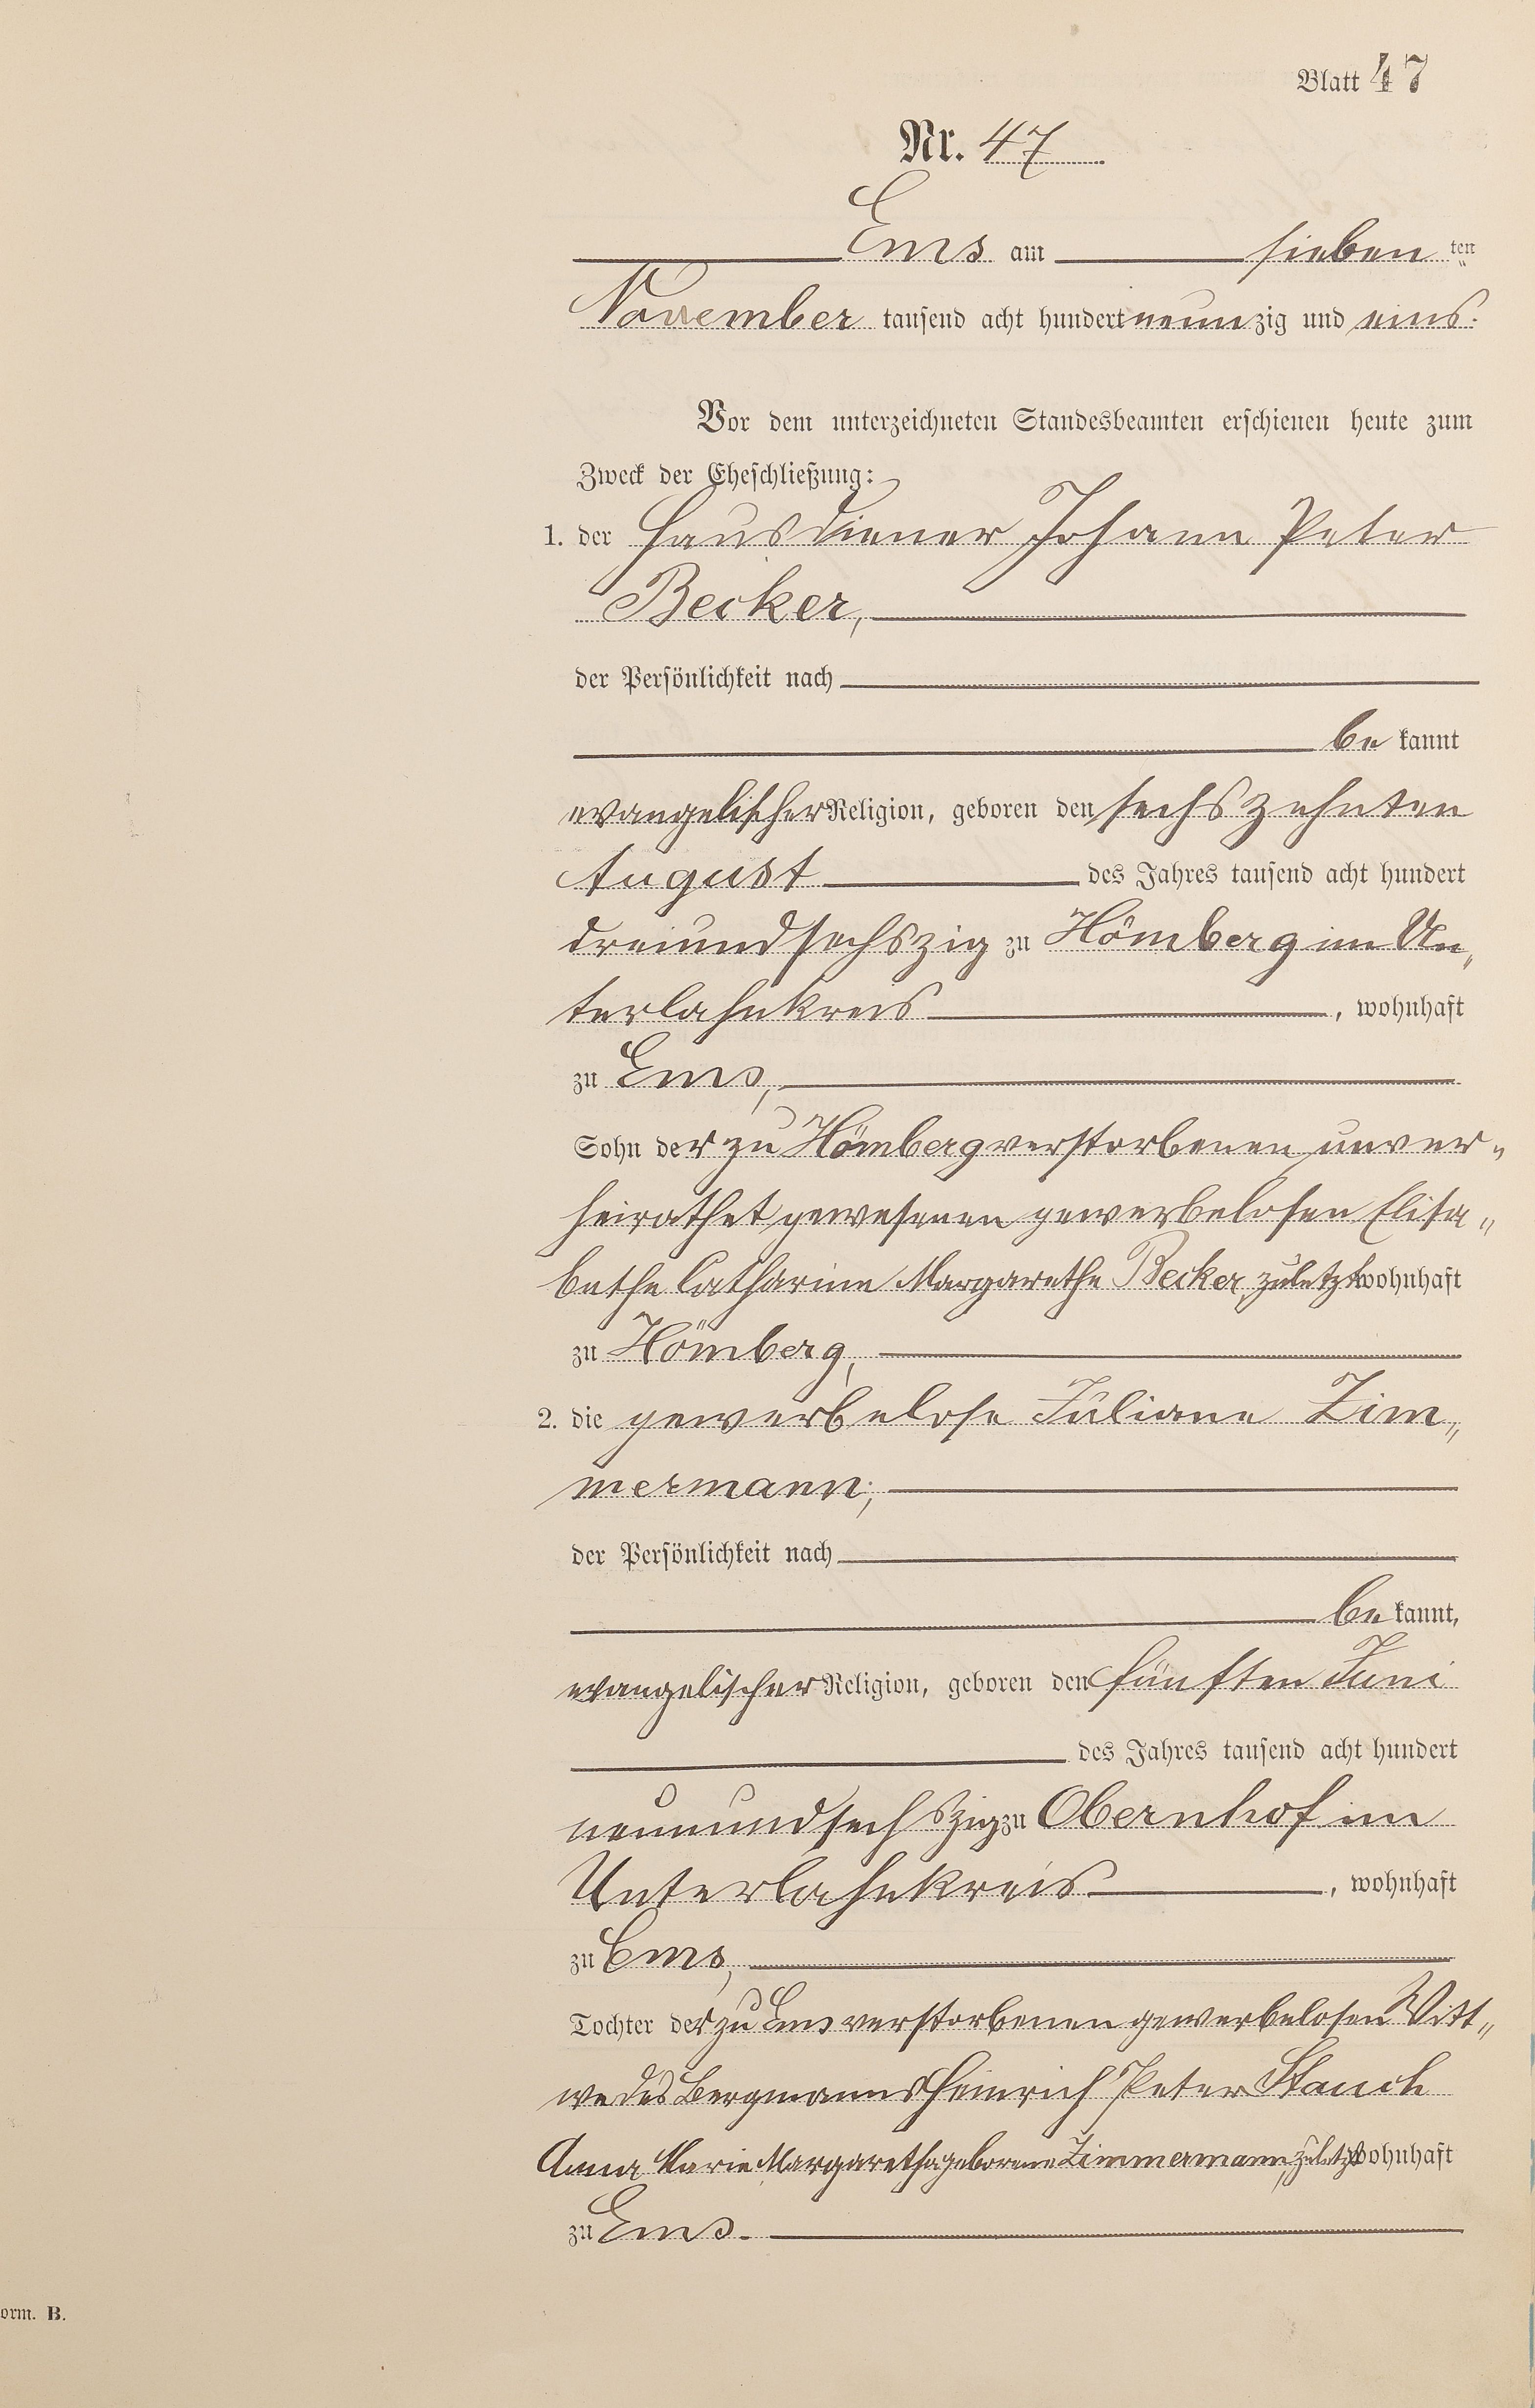 Blatt 47
Nr. 47
Ems am sieben ten
November tausend acht hundert neunzig und eins.
Vor dem unterzeichneten Standesbeamten erschienen heute zum
Zweck der Eheschließung:
1. der Hausdiener Johann Peter
Becker,
der Persönlichkeit nach
be kannt
evangelischer Religion, geboren den sechszehnten
August des Jahres tausend acht hundert
dreiundsechszig zu Hömberg im Un„
terlahnkreis, wohnhaft
zu Ems,
Sohn der zu Hömberg verstorbenen unver„
heirathet gewesenen gewerbelosen Elisa„
bethe Catharine Margarethe Becker, zuletzt wohnhaft
zu Hömberg,
2. die gewerbelose Juliane Zim„
mermann,
der Persönlichkeit nach
be kannt,
evangelischer Religion, geboren den fünften Juni
des Jahres tausend acht hundert
neunundsechszig zu Obernhof im
Unterlahnkreis, wohnhaft
zu Ems,
Tochter der zu Ems verstorbenen gewerbelosen Witt„
we des Bergmanns Heinrich Peter Stauch
Anna Marie Margaretha geborene Zimmermann, zuletzt wohnhaft
zu Ems.
orm. B.